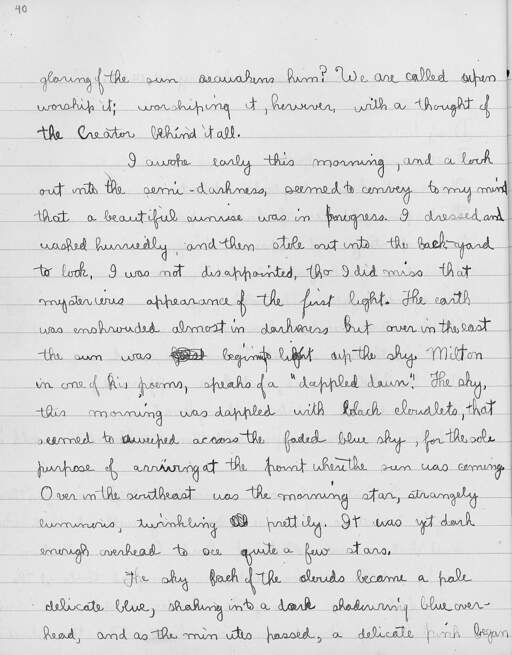 40
glaring of the sun reawakens him? We are called upon
worship it; worshiping it, however, with a thought of
the Creator behind it all.
I awoke early this morning, and a look
out into the semi-darkness, seemed to convey to my mind
that a beautiful sunrise was in progress. I dressed and
washed hurriedly, and then stole out into the back-yard
to look. I was not disappointed, tho I did miss that
mysterious appearance of the first light. The earth
was enshrouded almost in darkness but over in the east
the sun was begining to light up the sky. Milton
in one of his poems, speaks of a "dappled dawn". The sky,
this morning was dappled with black cloudlets, that
seemed to sweep across the faded blue sky, for the sole
purpose of arriving at the point where the sun was coming.
Over in the southeast was the morning star, strangely
luminous, twinkling prettily. It was yet dark
enough overhead to see quite a few stars.
The sky back of the clouds became a pale
delicate blue, shaking into a dark shadowing blue over-
head, and as the minutes passed, a delicate pink began